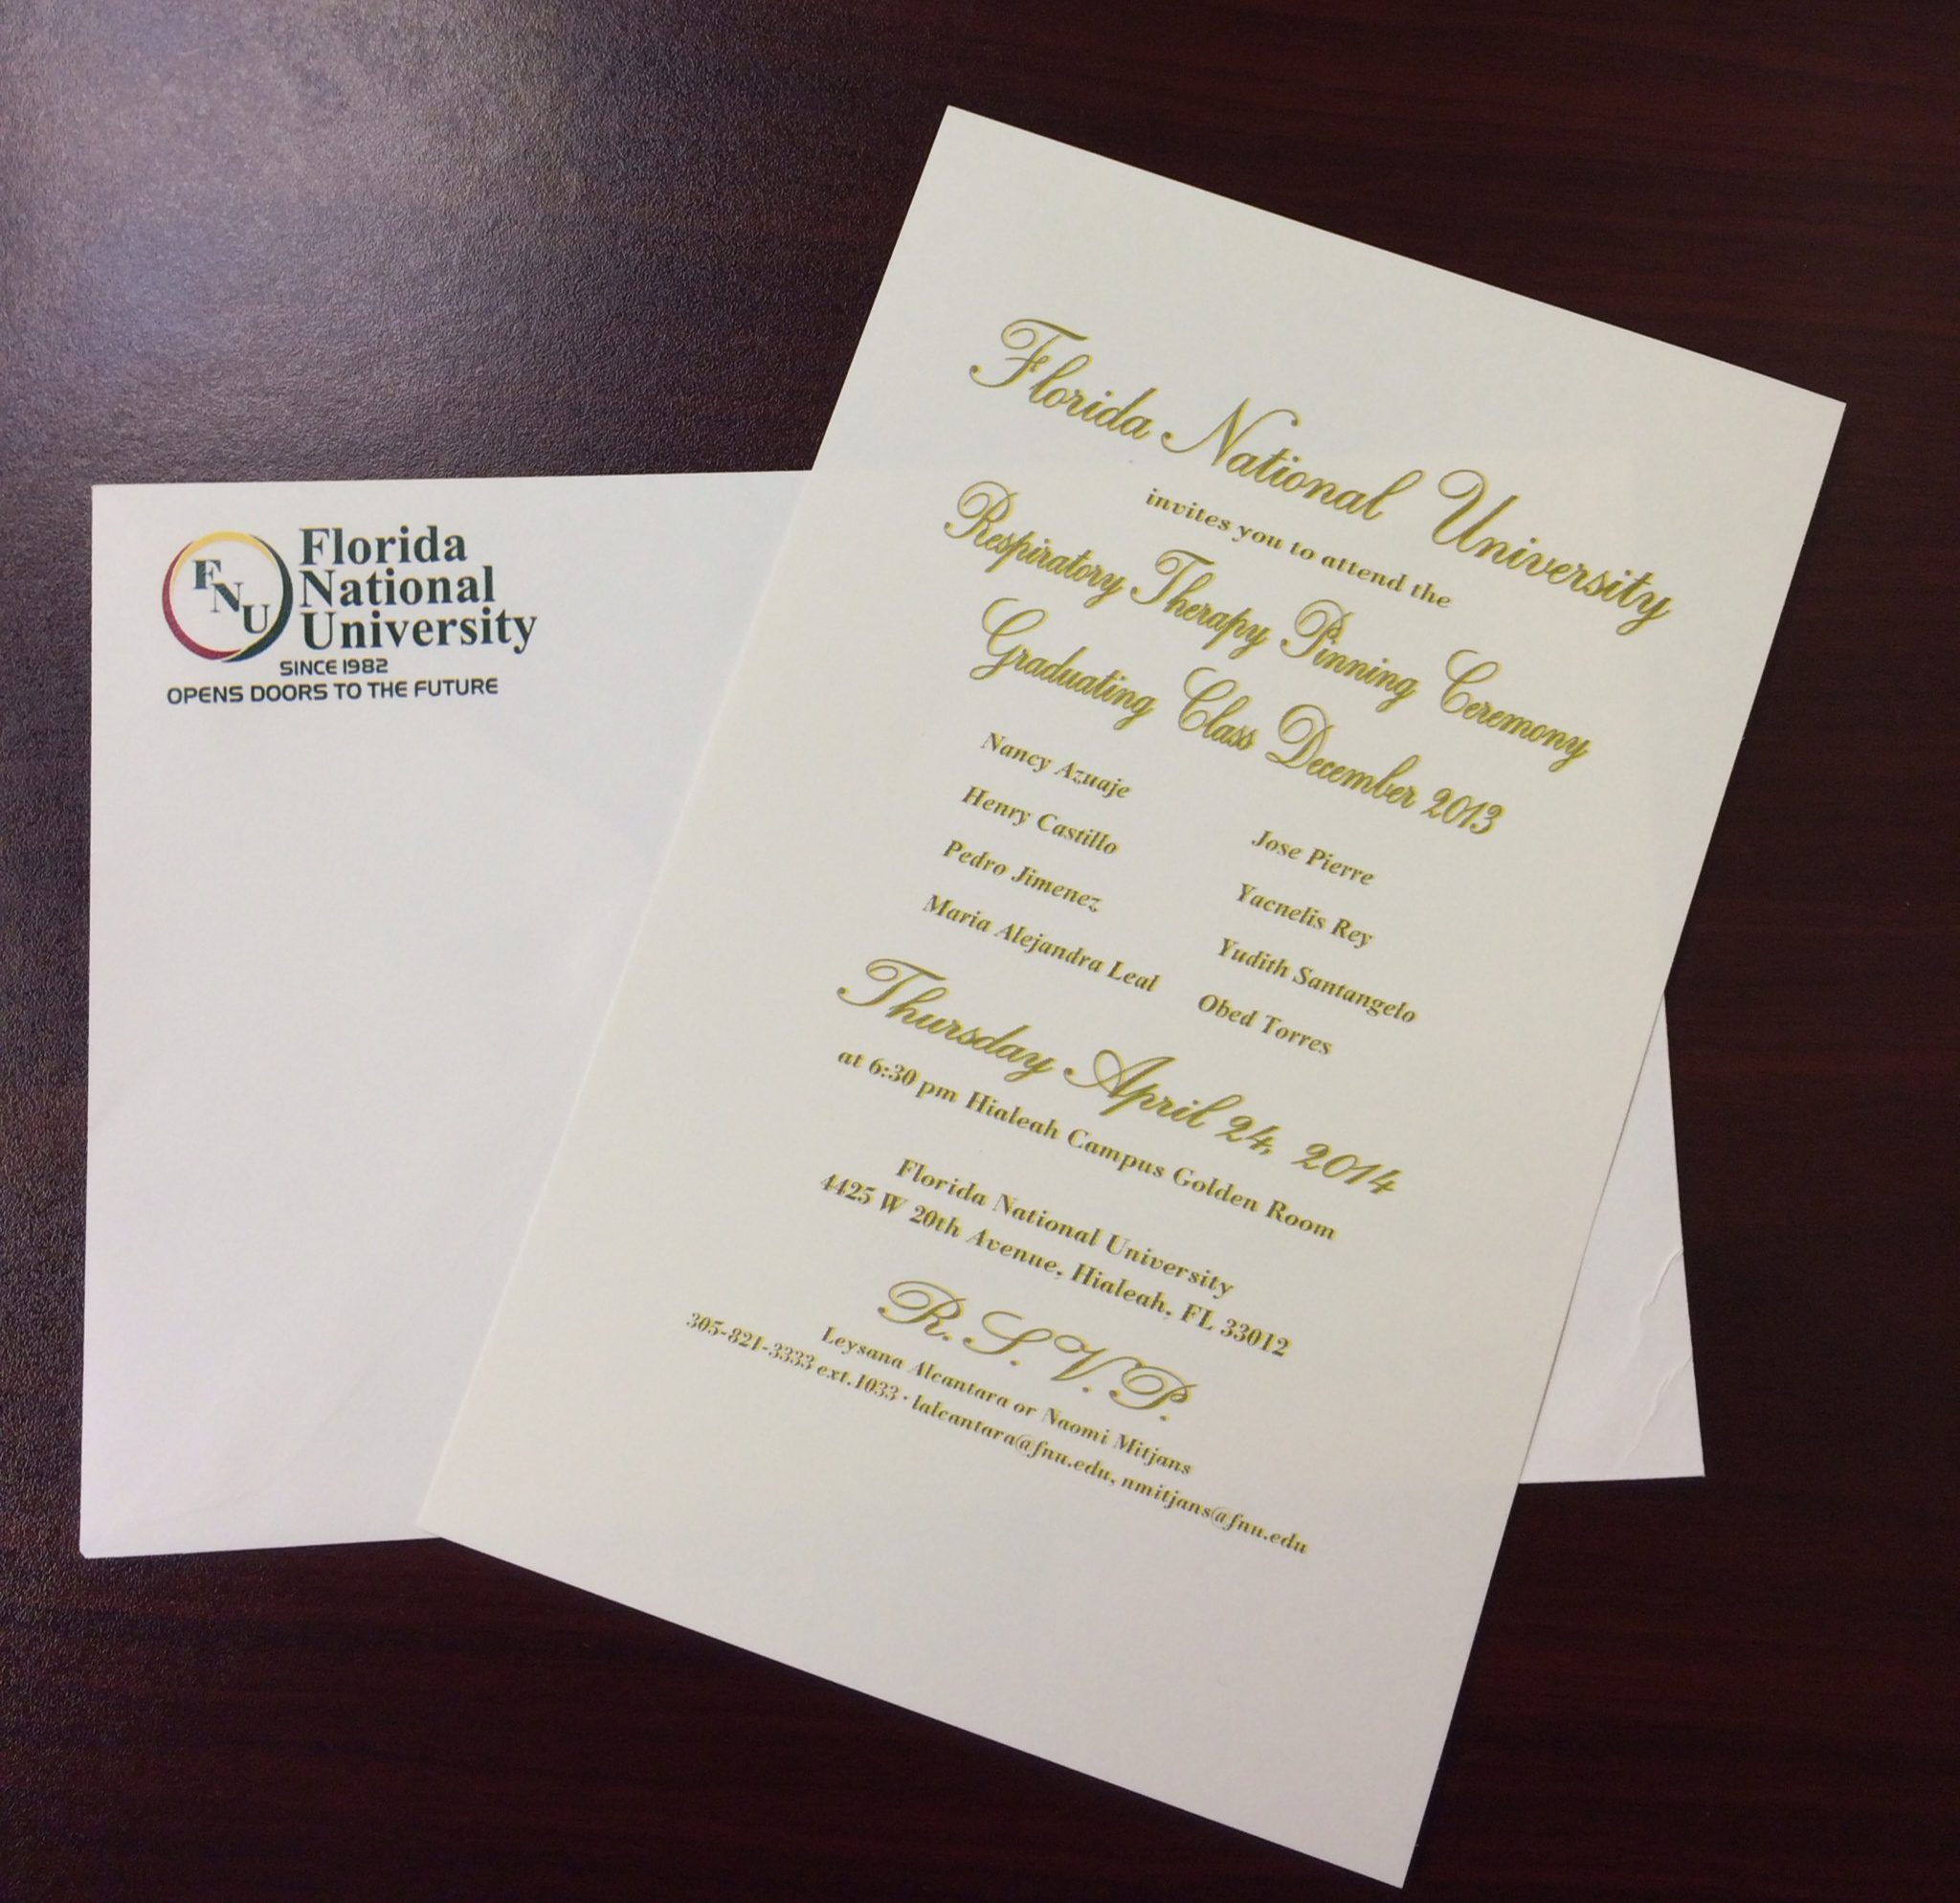 FNU
Florida
National
University
SINCE 1982
OPENS DOORS TO THE FUTURE
Florida National University
invites you to attend the
Respiratory Therapy Pinning Ceremony
Graduating Class December 2013
Nancy Azuaje
Henry Castillo
Pedro Jimenez
Maria Alejandra Leal
Jose Pierre
Yacnelis Rey
Yudith Santangelo
Obed Torres
Thursday April 24, 2014
at 6:30 pm Hialeah Campus Golden Room
Florida National University
4425 W 20th Avenue, Hialeah, FL 33012
R.S.V.P.
Leysana Alcantara or Naomi Mitjans
305-821-3333 ext.1033 · lalcantara@fnu.edu, nmitjans@fnu.edu